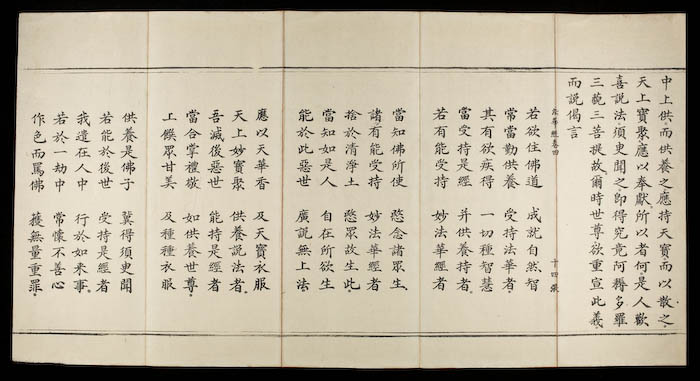 中上供而供養之應持天寶而以散之
天上寶聚應以奉獻所以者何是人歡
喜說法須臾聞之即得究竟阿耨多羅
三藐三菩提故爾時世尊欲重宣此義
而說偈言
法華經卷四 十四張
若欲住佛道 成就自然智
常當勤供養 受持法華者
其有欲疾得 一切種智慧
當受持是經 并供養持者
若有能受持 妙法華經者
當知佛所使 愍念諸眾生
諸有能受持 妙法華經者
捨於清淨土 愍眾故生此
當知如是人 自在所欲生
能於此惡世 廣說無上法
應以天華香 及天寶衣服
天上妙寶聚 供養說法者
吾滅後惡世 能持是經者
當合掌禮敬 如供養世尊
上饌眾甘美 及種種衣服
供養是佛子 冀得須臾聞
若能於後世 受持是經者
我遣在人中 行於如來事
若於一劫中 常懷不善心
作色而罵佛 獲無量重罪